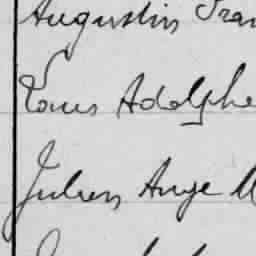 Augustin Fran
Louis Adolphe
Julien Ange